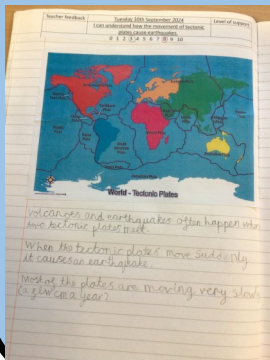 Teacher feedback
Tuesday 16th September 2014
I can understand how the movement of tectonic
plates cause earthquakes.
0 1 2 3 4 5 6 7 8 9 10
Level of support
World - Tectonic Plates
Volcanoes and earthquakes often happen when
two tectonic plates meet.
When the tectonic plates move suddenly
it causes an earthquake.
Most of the plates are moving very slowly
(a few cm a year)